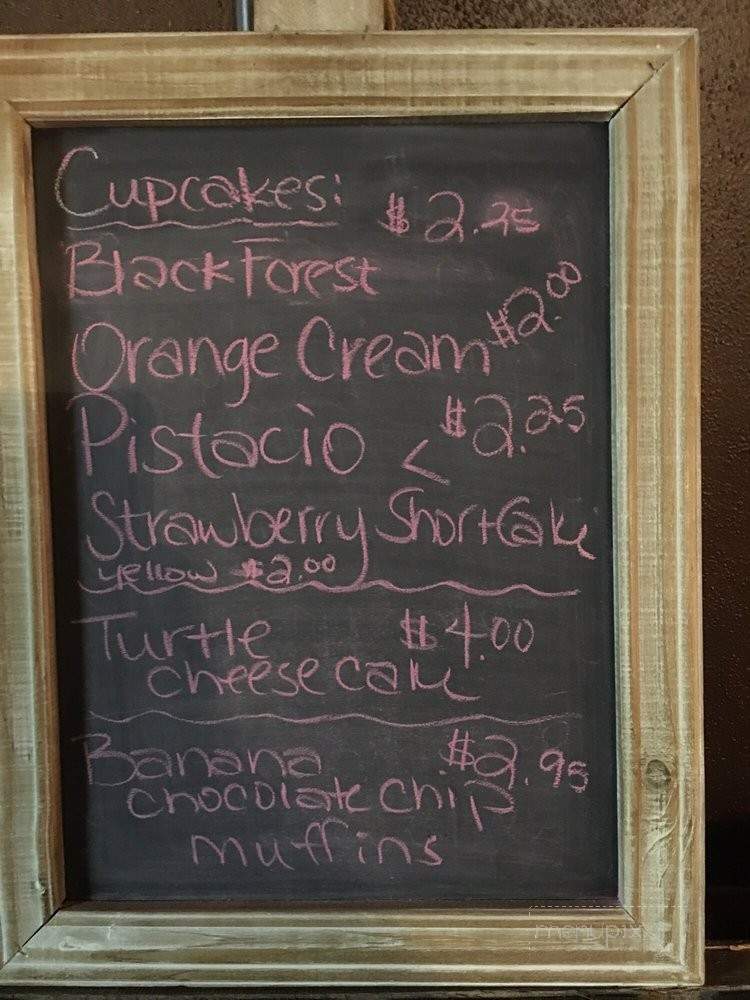 Cupcakes:
$2.25
Black Forest
Orange Cream $2.00
Pistacio < $2.25
Strawberry Shortcake
yellow $2.00
Turtle $4.00
cheese cake
Banana $2.95
chocolate chip
muffins
menupix